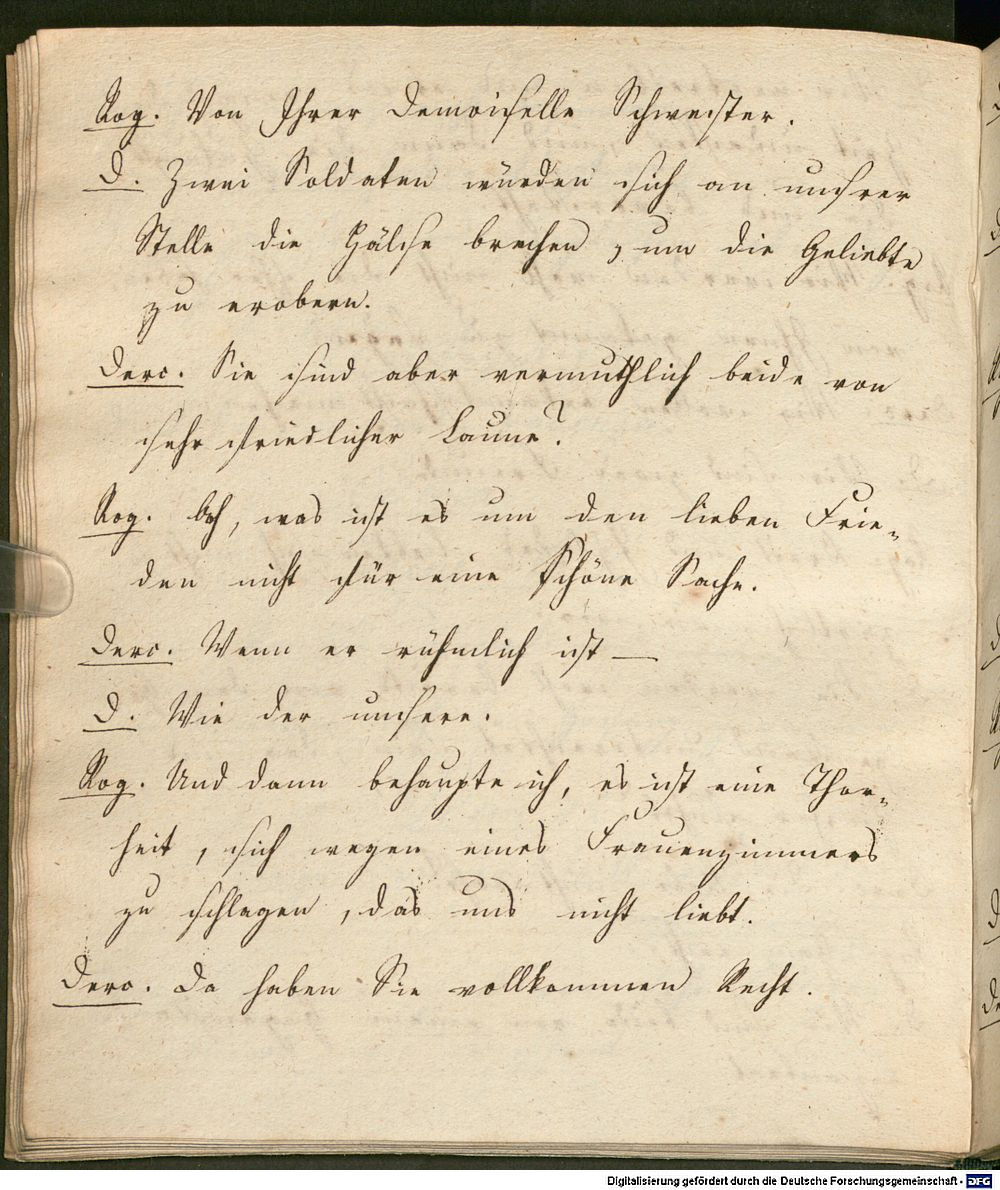 Rog. Von Ihrer Demoiselle Schwester.
D. Zwei Soldaten würden sich an unsrer
Stelle die Hälse brechen, um die Geliebte
zu erobern.
Derc. Sie sind aber vermuthlich beide von
sehr friedlicher Laune?
Rog. Ach, was ist es um den lieben Frie-
den nicht für eine schöne Sache.
Derc. Wenn er rühmlich ist —
D. Wie der unsere.
Rog. Und dann behaupte ich, es ist eine Thor-
heit, sich wegen eines Frauenzimmers
zu schlagen, das uns nicht liebt.
Derc. Da haben Sie vollkommen Recht.
Digitalisierung gefördert durch die Deutsche Forschungsgemeinschaft - DFG